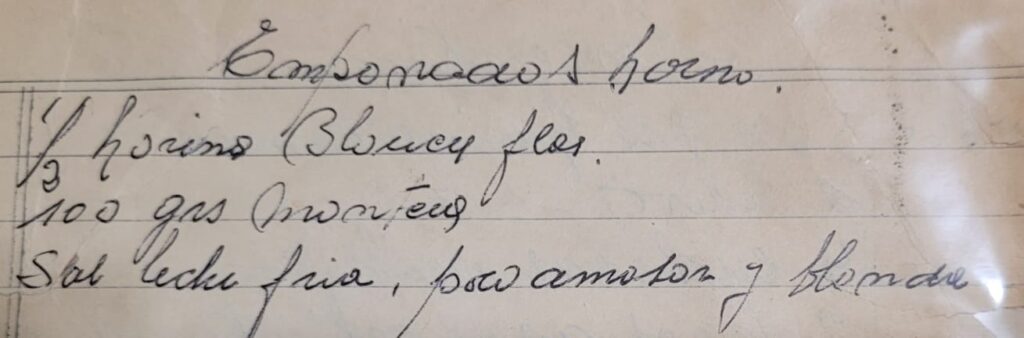 Empanadas horno.
1/2 harina Blanca flor.
100 grs manteca
Sal leche fria, para amasar y blanda